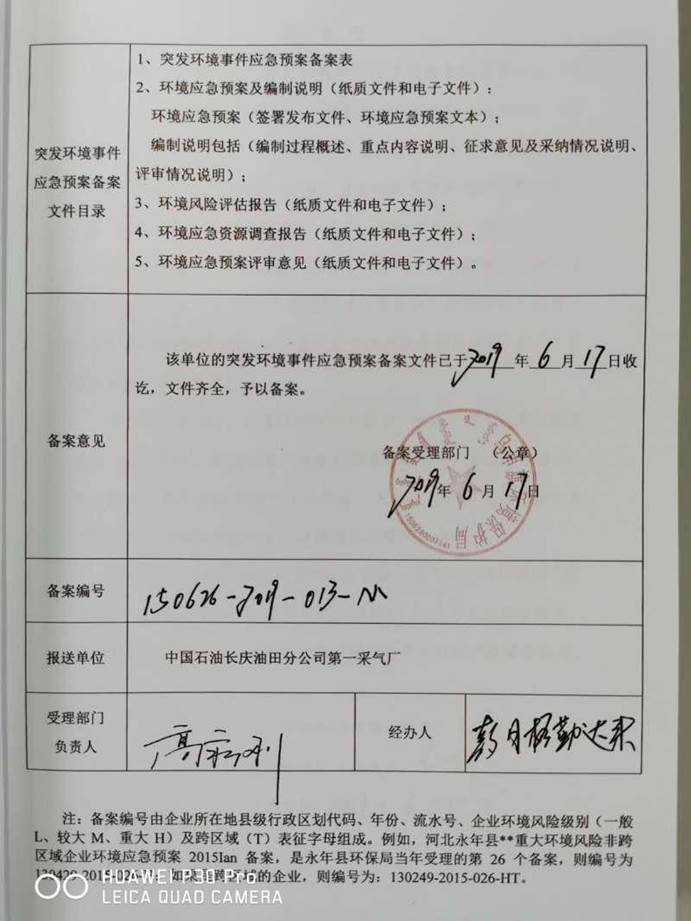 突发环境事件
应急预案备案
文件目录
1、突发环境事件应急预案备案表
2、环境应急预案及编制说明（纸质文件和电子文件）：
环境应急预案（签署发布文件、环境应急预案文本）；
编制说明包括（编制过程概述、重点内容说明、征求意见及采纳情况说明、
评审情况说明）；
3、环境风险评估报告（纸质文件和电子文件）；
4、环境应急资源调查报告（纸质文件和电子文件）；
5、环境应急预案评审意见（纸质文件和电子文件）。
备案意见
该单位的突发环境事件应急预案备案文件已于2019年6月17日收
讫，文件齐全，予以备案。
备案受理部门 （公章）
2019年6月17日
环境保护局
备案编号
150626-2019-013-M
报送单位
中国石油长庆油田分公司第一采气厂
受理部门
负责人
经办人
注：备案编号由企业所在地县级行政区划代码、年份、流水号、企业环境风险级别（一般
L、较大 M、重大 H）及跨区域（T）表征字母组成。例如，河北永年县**重大环境风险非跨
区域企业环境应急预案 2015Ian 备案，是永年县环保局当年受理的第 26 个备案，则编号为
的企业，则编号为：130249-2015-026-HT。
HUAWEI P30 Pro
LEICA QUAD CAMERA